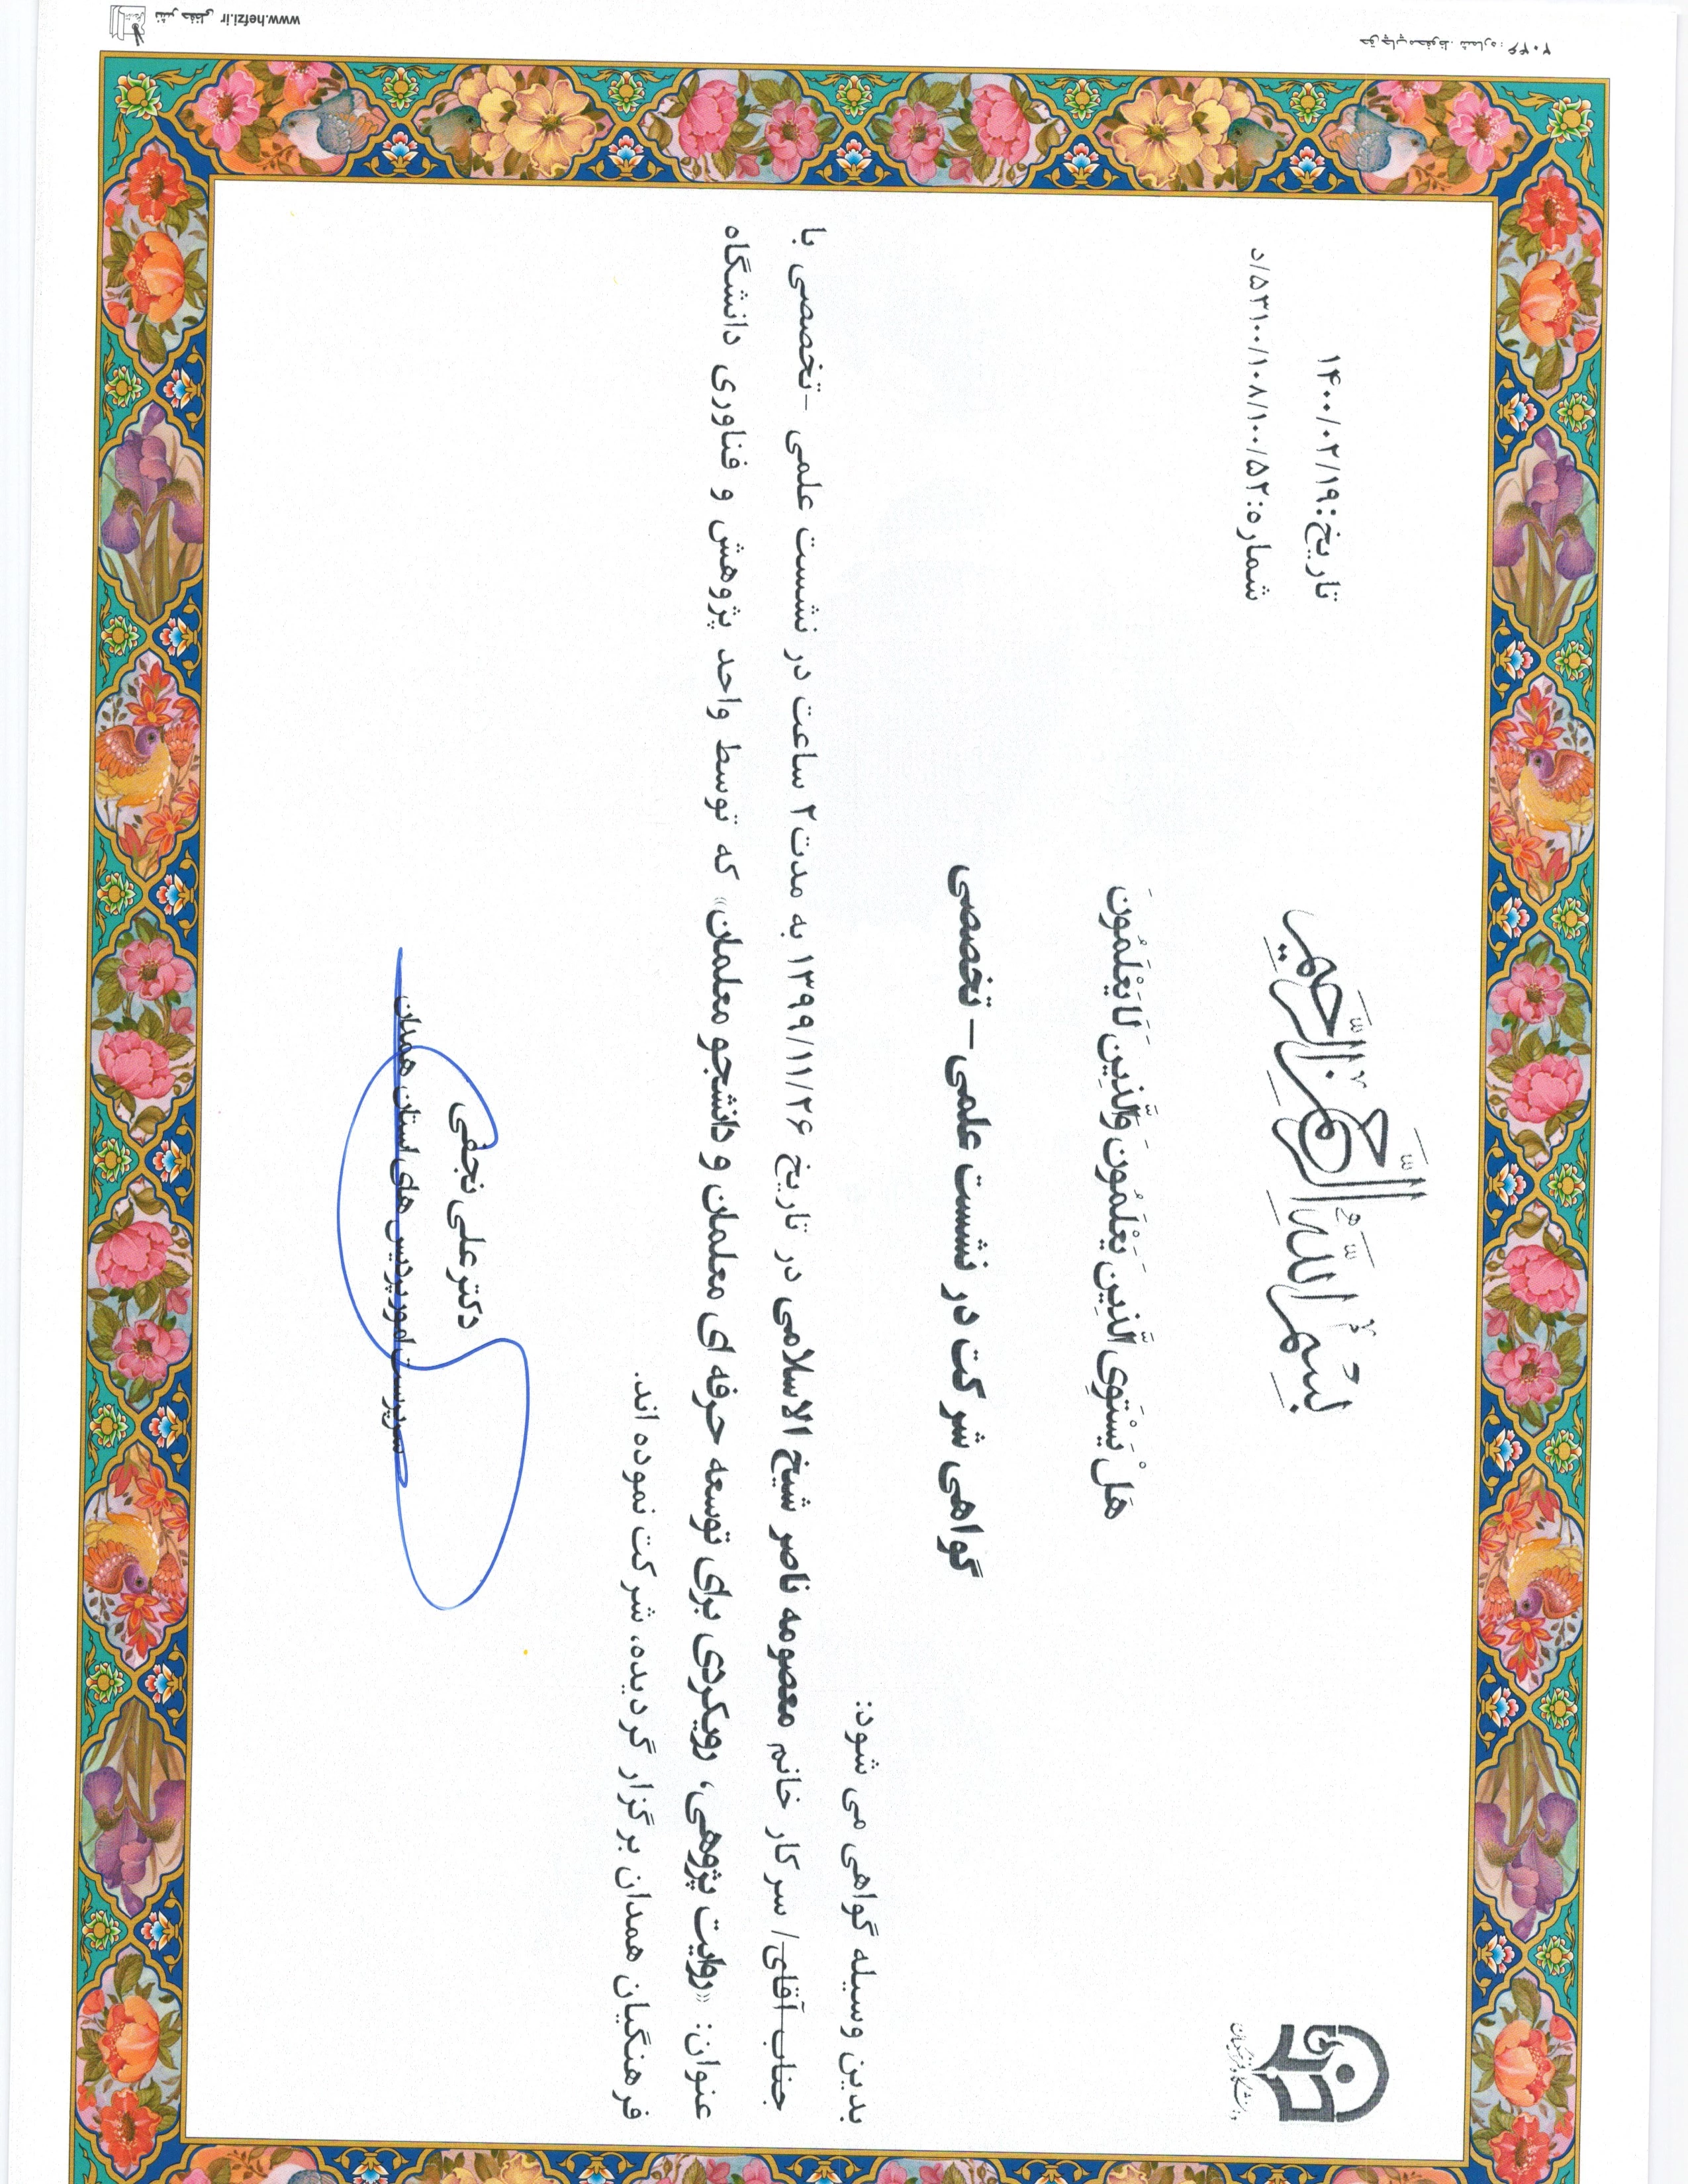 بِسْمِ اللَّهِ الرَّحْمَنِ الرَّحِيمِ
دانشگاه فرهنگیان
تاریخ:۱۴۰۰/۰۲/۱۹
شماره:۵۳۱۰۰/۱۰۸/۱۰۰/۵۲/د
هَلْ يَسْتَوِى الَّذِينَ يَعْلَمُونَ وَالَّذِينَ لَا يَعْلَمُونَ
گواهی شرکت در نشست علمی – تخصصی
بدین وسیله گواهی می شود:
جناب آقای/ سرکار خانم معصومه ناصر شیخ الاسلامی در تاریخ ۱۳۹۹/۱۱/۲۶ به مدت ۲ ساعت در نشست علمی -تخصصی با
عنوان: «روایت پژوهی، رویکردی برای توسعه حرفه ای معلمان و دانشجو معلمان» که توسط واحد پژوهش و فناوری دانشگاه
فرهنگیان همدان برگزار گردیده، شرکت نموده اند.
دکتر علی نجفی
سرپرست امور پردیس های استان همدان
www.hefzi.ir نشر حفظی
حق چاپ محفوظ. شماره: ۲۰۴۶